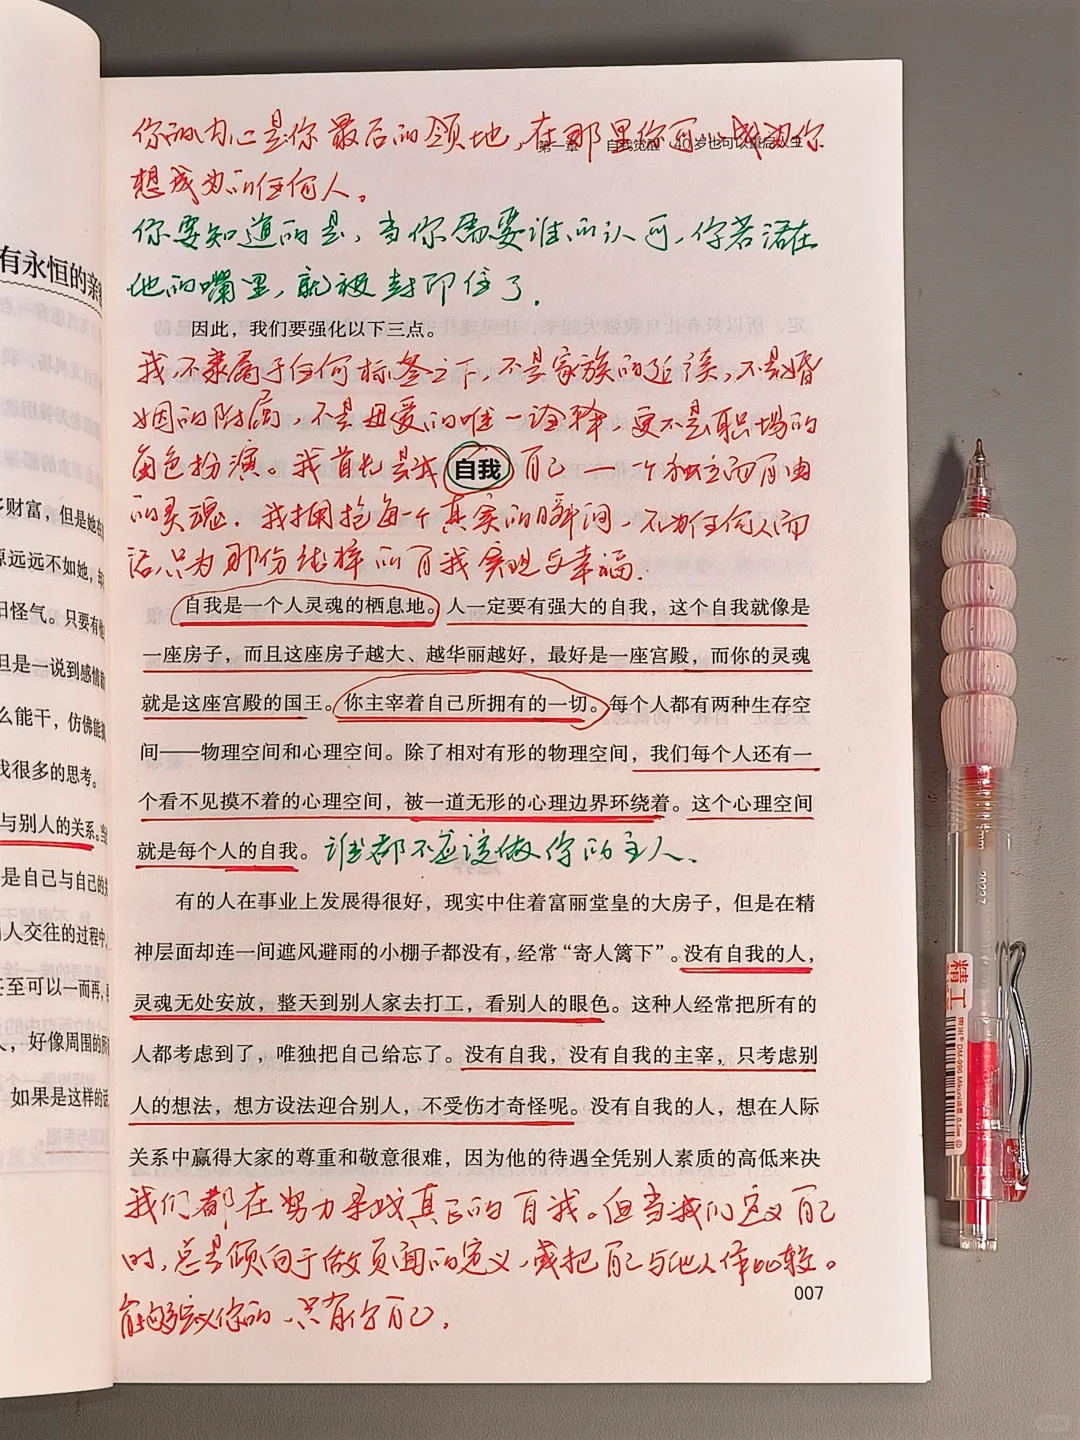 有永恒的亲密
财富，但是她在
原远远不如她，
阳怪气。只要有他
但是一说到感情
么能干，仿佛能
我很多的思考。
与别人的关系。
是自己与自己的
人交往的过程中，
至可以一而再，
人，好像周围的所
如果是这样的话
你的内心是你最后的领地，在那里你可以成为你
第一章 自我觉醒 40岁也可以重启人生
想成为的任何人。
你要知道的是，当你需要谁的认可，你若活在
他的嘴里，就被封印住了。
因此，我们要强化以下三点。
我，不隶属于任何标签之下，不是家族的延续，不是婚
姻的附属，不是母爱的唯一诠释，更不是职场的
角色扮演。我首先是我 自我 自己 一个独立而自由
的灵魂。我拥抱每一个真实的瞬间，不为任何人而
活，只为那份纯粹的自我实现与幸福。
自我是一个人灵魂的栖息地。人一定要有强大的自我，这个自我就像是
一座房子，而且这座房子越大、越华丽越好，最好是一座宫殿，而你的灵魂
就是这座宫殿的国王。你主宰着自己所拥有的一切。每个人都有两种生存空
间——物理空间和心理空间。除了相对有形的物理空间，我们每个人还有一
个看不见摸不着的心理空间，被一道无形的心理边界环绕着。这个心理空间
就是每个人的自我。 谁都不应该做你的主人。
有的人在事业上发展得很好，现实中住着富丽堂皇的大房子，但是在精
神层面却连一间遮风避雨的小棚子都没有，经常“寄人篱下”。没有自我的人，
灵魂无处安放，整天到别人家去打工，看别人的眼色。这种人经常把所有的
人都考虑到了，唯独把自己给忘了。没有自我，没有自我的主宰，只考虑别
人的想法，想方设法迎合别人，不受伤才奇怪呢。没有自我的人，想在人际
关系中赢得大家的尊重和敬意很难，因为他的待遇全凭别人素质的高低来决
我们都在努力寻找真正的自我。但当我们定义自己
时，总是倾向于做负面的定义，或把自己与他人作比较。
能够定义你的，只有你自己。
007
精工
DM-996